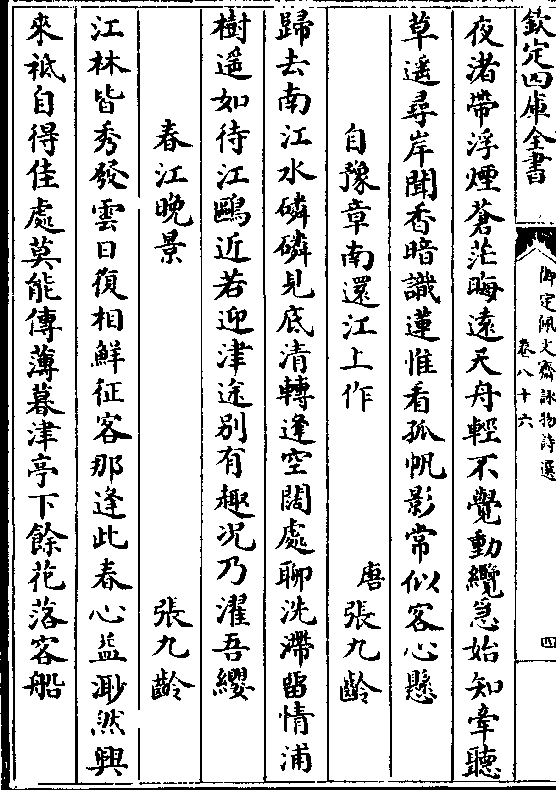 欽定四庫全書
御定佩文齋詠物詩選
卷八十六
四
夜渚帶浮煙蒼茫晦遠天舟輕不覺動纜急始知牽聽
草遙尋岸聞香暗識蓮惟看孤帆影常似客心懸
自豫章南還江上作
唐張九齡
歸去南江水磷磷見底清轉逢空闊處聊洗滯留情浦
樹遙如待江鷗近若迎津途別有趣况乃濯吾纓
春江晚景
張九齡
江林皆秀發雲日復相鮮征客那逢此春心益渺然興
來祇自得佳處莫能傳薄暮津亭下餘花落客船